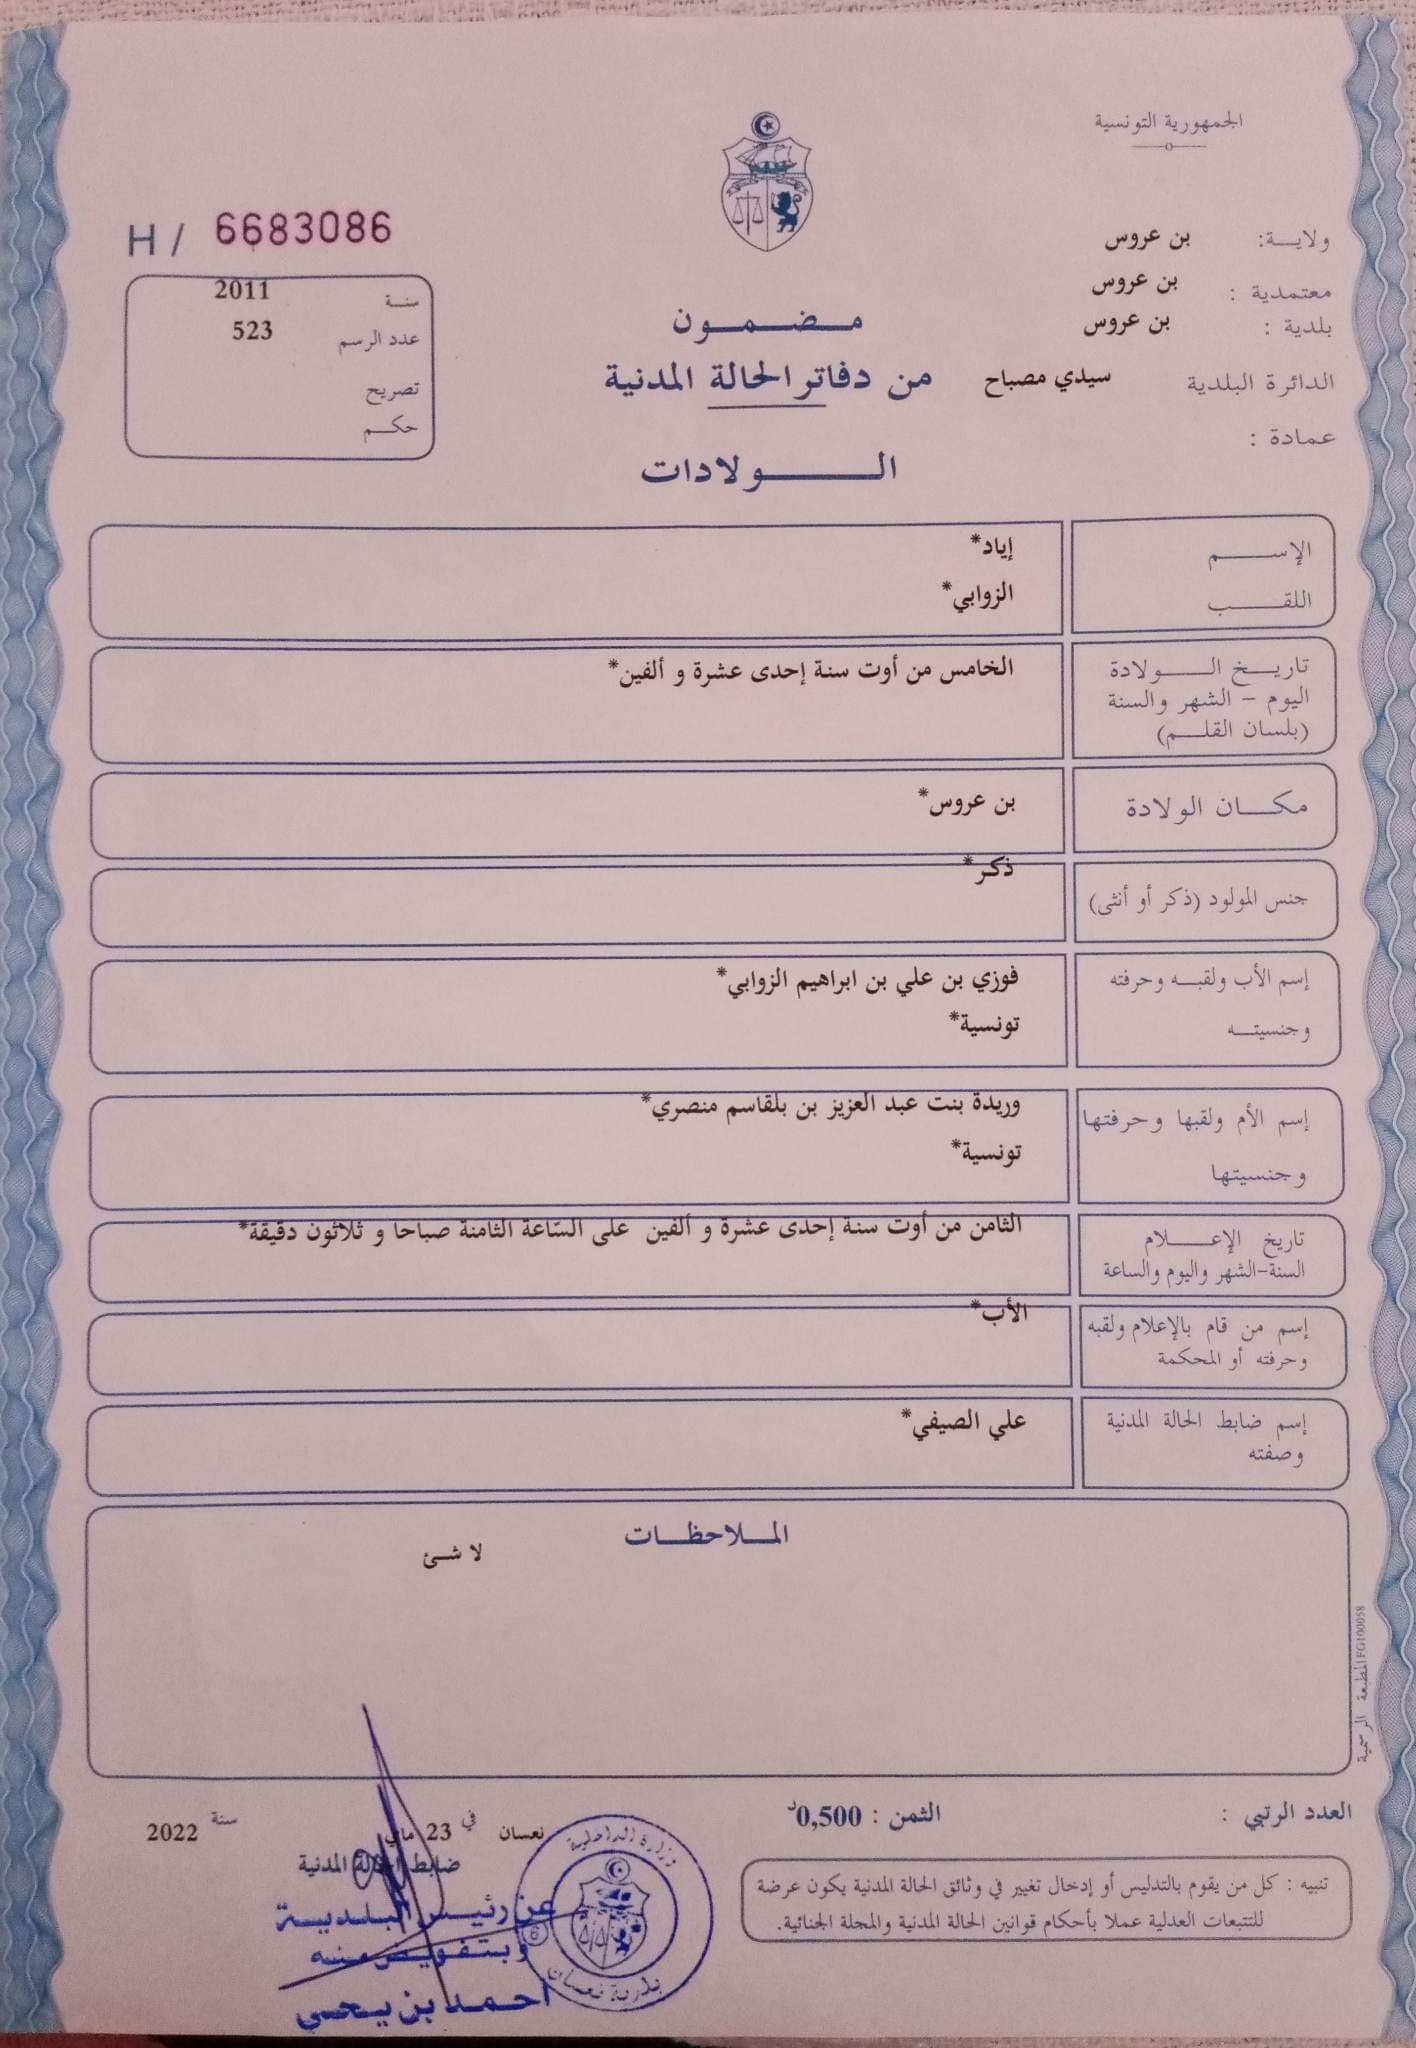 الجمهورية التونسية
H / 6683086
ولايــة: بن عروس
معتمدية : بن عروس
بلدية : بن عروس
الدائرة البلدية سيدي مصباح
عمادة :
سنة 2011
عدد الرسم 523
تصريح
حكم
مضمون
من دفاتر الحالة المدنية
الولادات
الإسم إياد*
اللقب الزوابي*
تاريخ الولادة الخامس من أوت سنة إحدى عشرة و ألفين*
اليوم – الشهر والسنة
(بلسان القلم)
مكان الولادة بن عروس*
جنس المولود (ذكر أو أنثى) ذكر*
إسم الأب ولقبه وحرفته فوزي بن علي بن ابراهيم الزوابي*
وجنسيته تونسية*
إسم الأم ولقبها وحرفتها وريدة بنت عبد العزيز بن بلقاسم منصري*
وجنسيتها تونسية*
تاريخ الإعلام الثامن من أوت سنة إحدى عشرة و ألفين على السّاعة الثامنة صباحا و ثلاثون دقيقة*
السنة-الشهر واليوم والساعة
إسم من قام بالإعلام ولقبه الأب*
وحرفته أو المحكمة
إسم ضابط الحالة المدنية علي الصيفي*
وصفته
الملاحظات
لا شئ
المطبعة الرسمية FG100058
العدد الرتبي :
الثمن : 0,500د
نعسان في 23 ماي سنة 2022
ضابط الحالة المدنية
عن رئيس البلدية
وبتفويض منه
احمد بن يحيى
وزارة الداخلية
بلدية نعسان
6
تنبيه : كل من يقوم بالتدليس أو إدخال تغيير في وثائق الحالة المدنية يكون عرضة
للتتبعات العدلية عملا بأحكام قوانين الحالة المدنية والمجلة الجنائية.